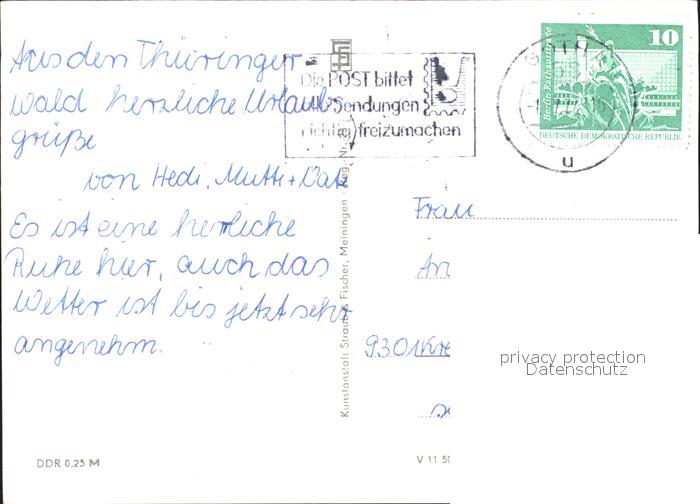 Aus den Thüringer
Wald herzliche Urlaubs
grüße
von Hedi, Mutti + Vati
Es ist eine herrliche
Ruhe hier, auch das
Wetter ist bis jetzt sehr
angenehm.
DDR 0,25 M
Kunstanstalt Straub & Fischer, Meiningen
Die POST bittet
Sendungen
richtig freizumachen
GOTHA
u
10
Berlin, Rathausstraße
DEUTSCHE DEMOKRATISCHE REPUBLIK
Frau
An
9301 Kre
privacy protection
Datenschutz
V 11 50